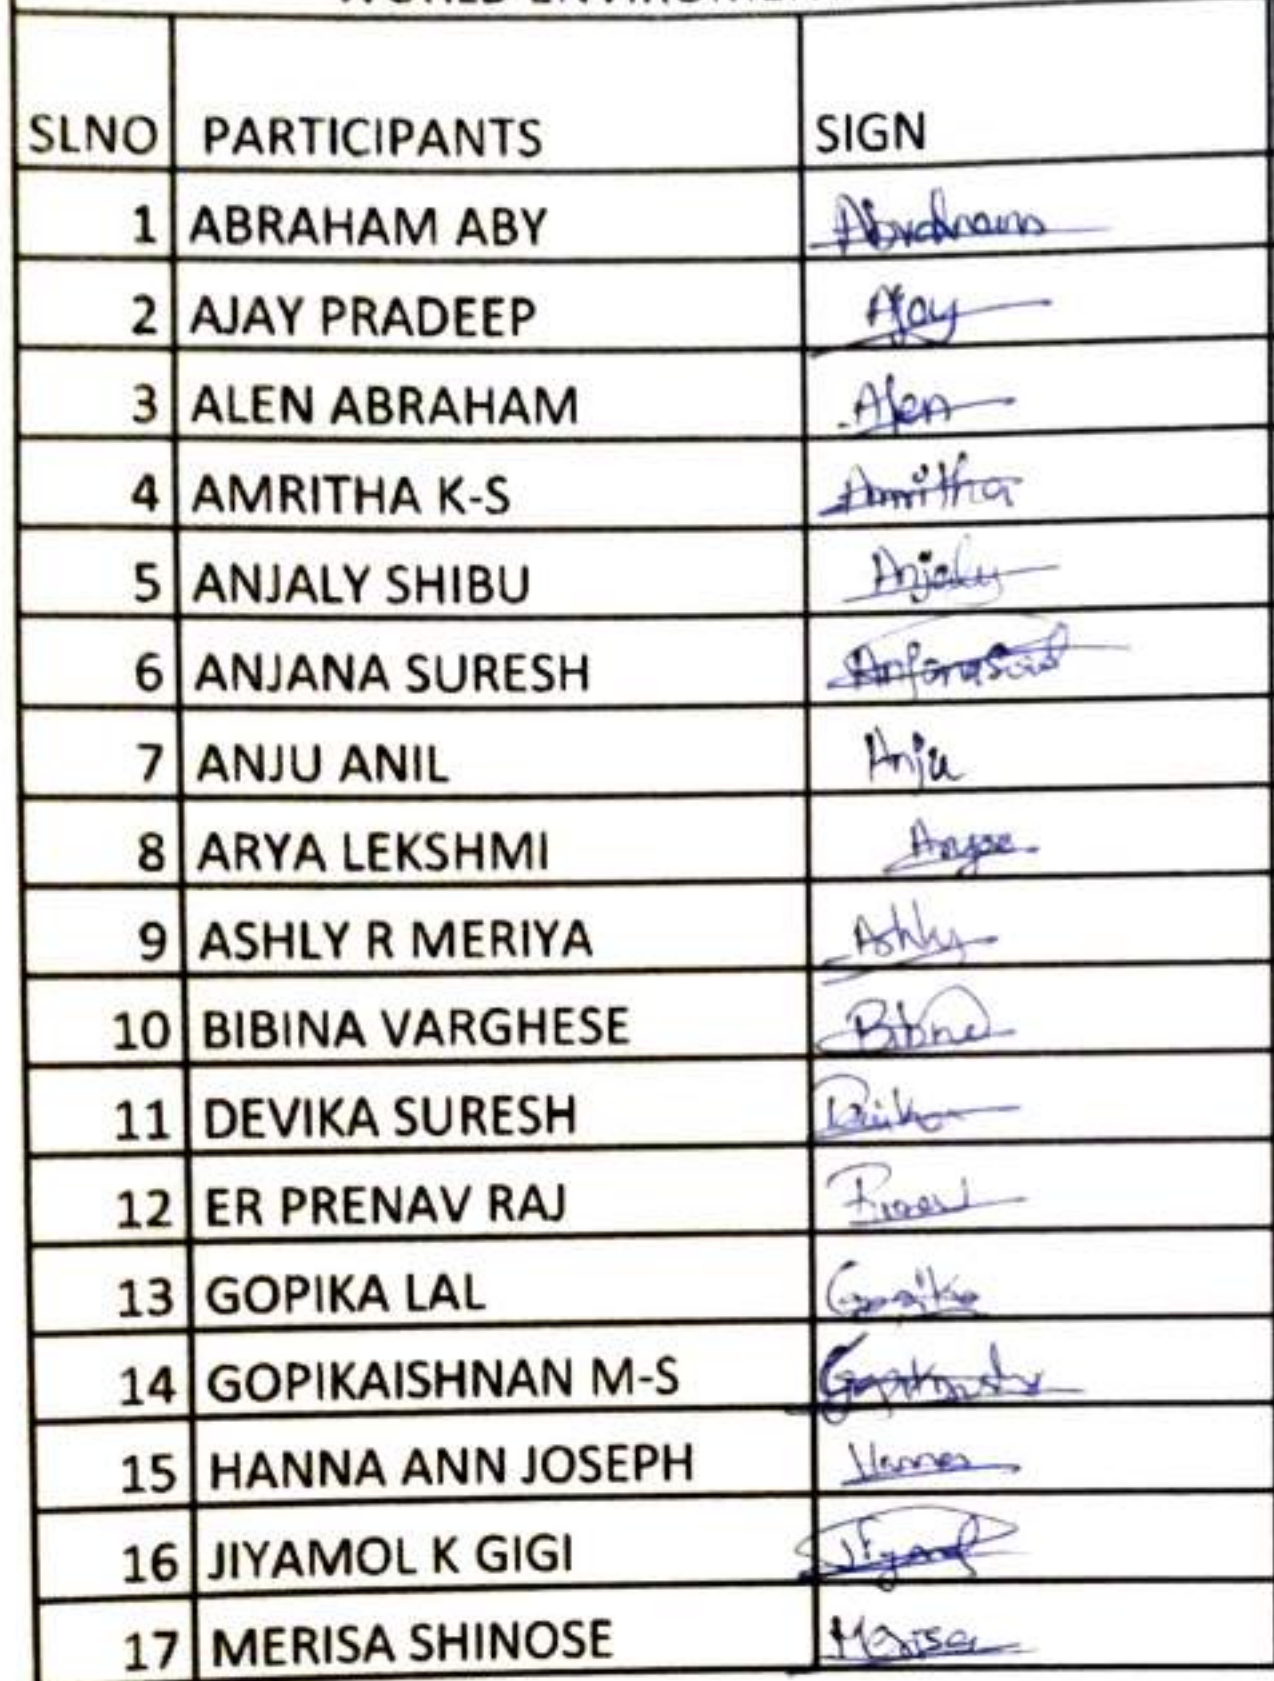 SLNO PARTICIPANTS SIGN
1 ABRAHAM ABY Abraham
2 AJAY PRADEEP Ajay
3 ALEN ABRAHAM Alen
4 AMRITHA K-S Amritha
5 ANJALY SHIBU Anjaly
6 ANJANA SURESH
7 ANJU ANIL Anju
8 ARYA LEKSHMI Arya
9 ASHLY R MERIYA Ashly
10 BIBINA VARGHESE
11 DEVIKA SURESH
12 ER PRENAV RAJ
13 GOPIKA LAL Gopika
14 GOPIKAISHNAN M-S
15 HANNA ANN JOSEPH Hanna
16 JIYAMOL K GIGI
17 MERISA SHINOSE Merisa